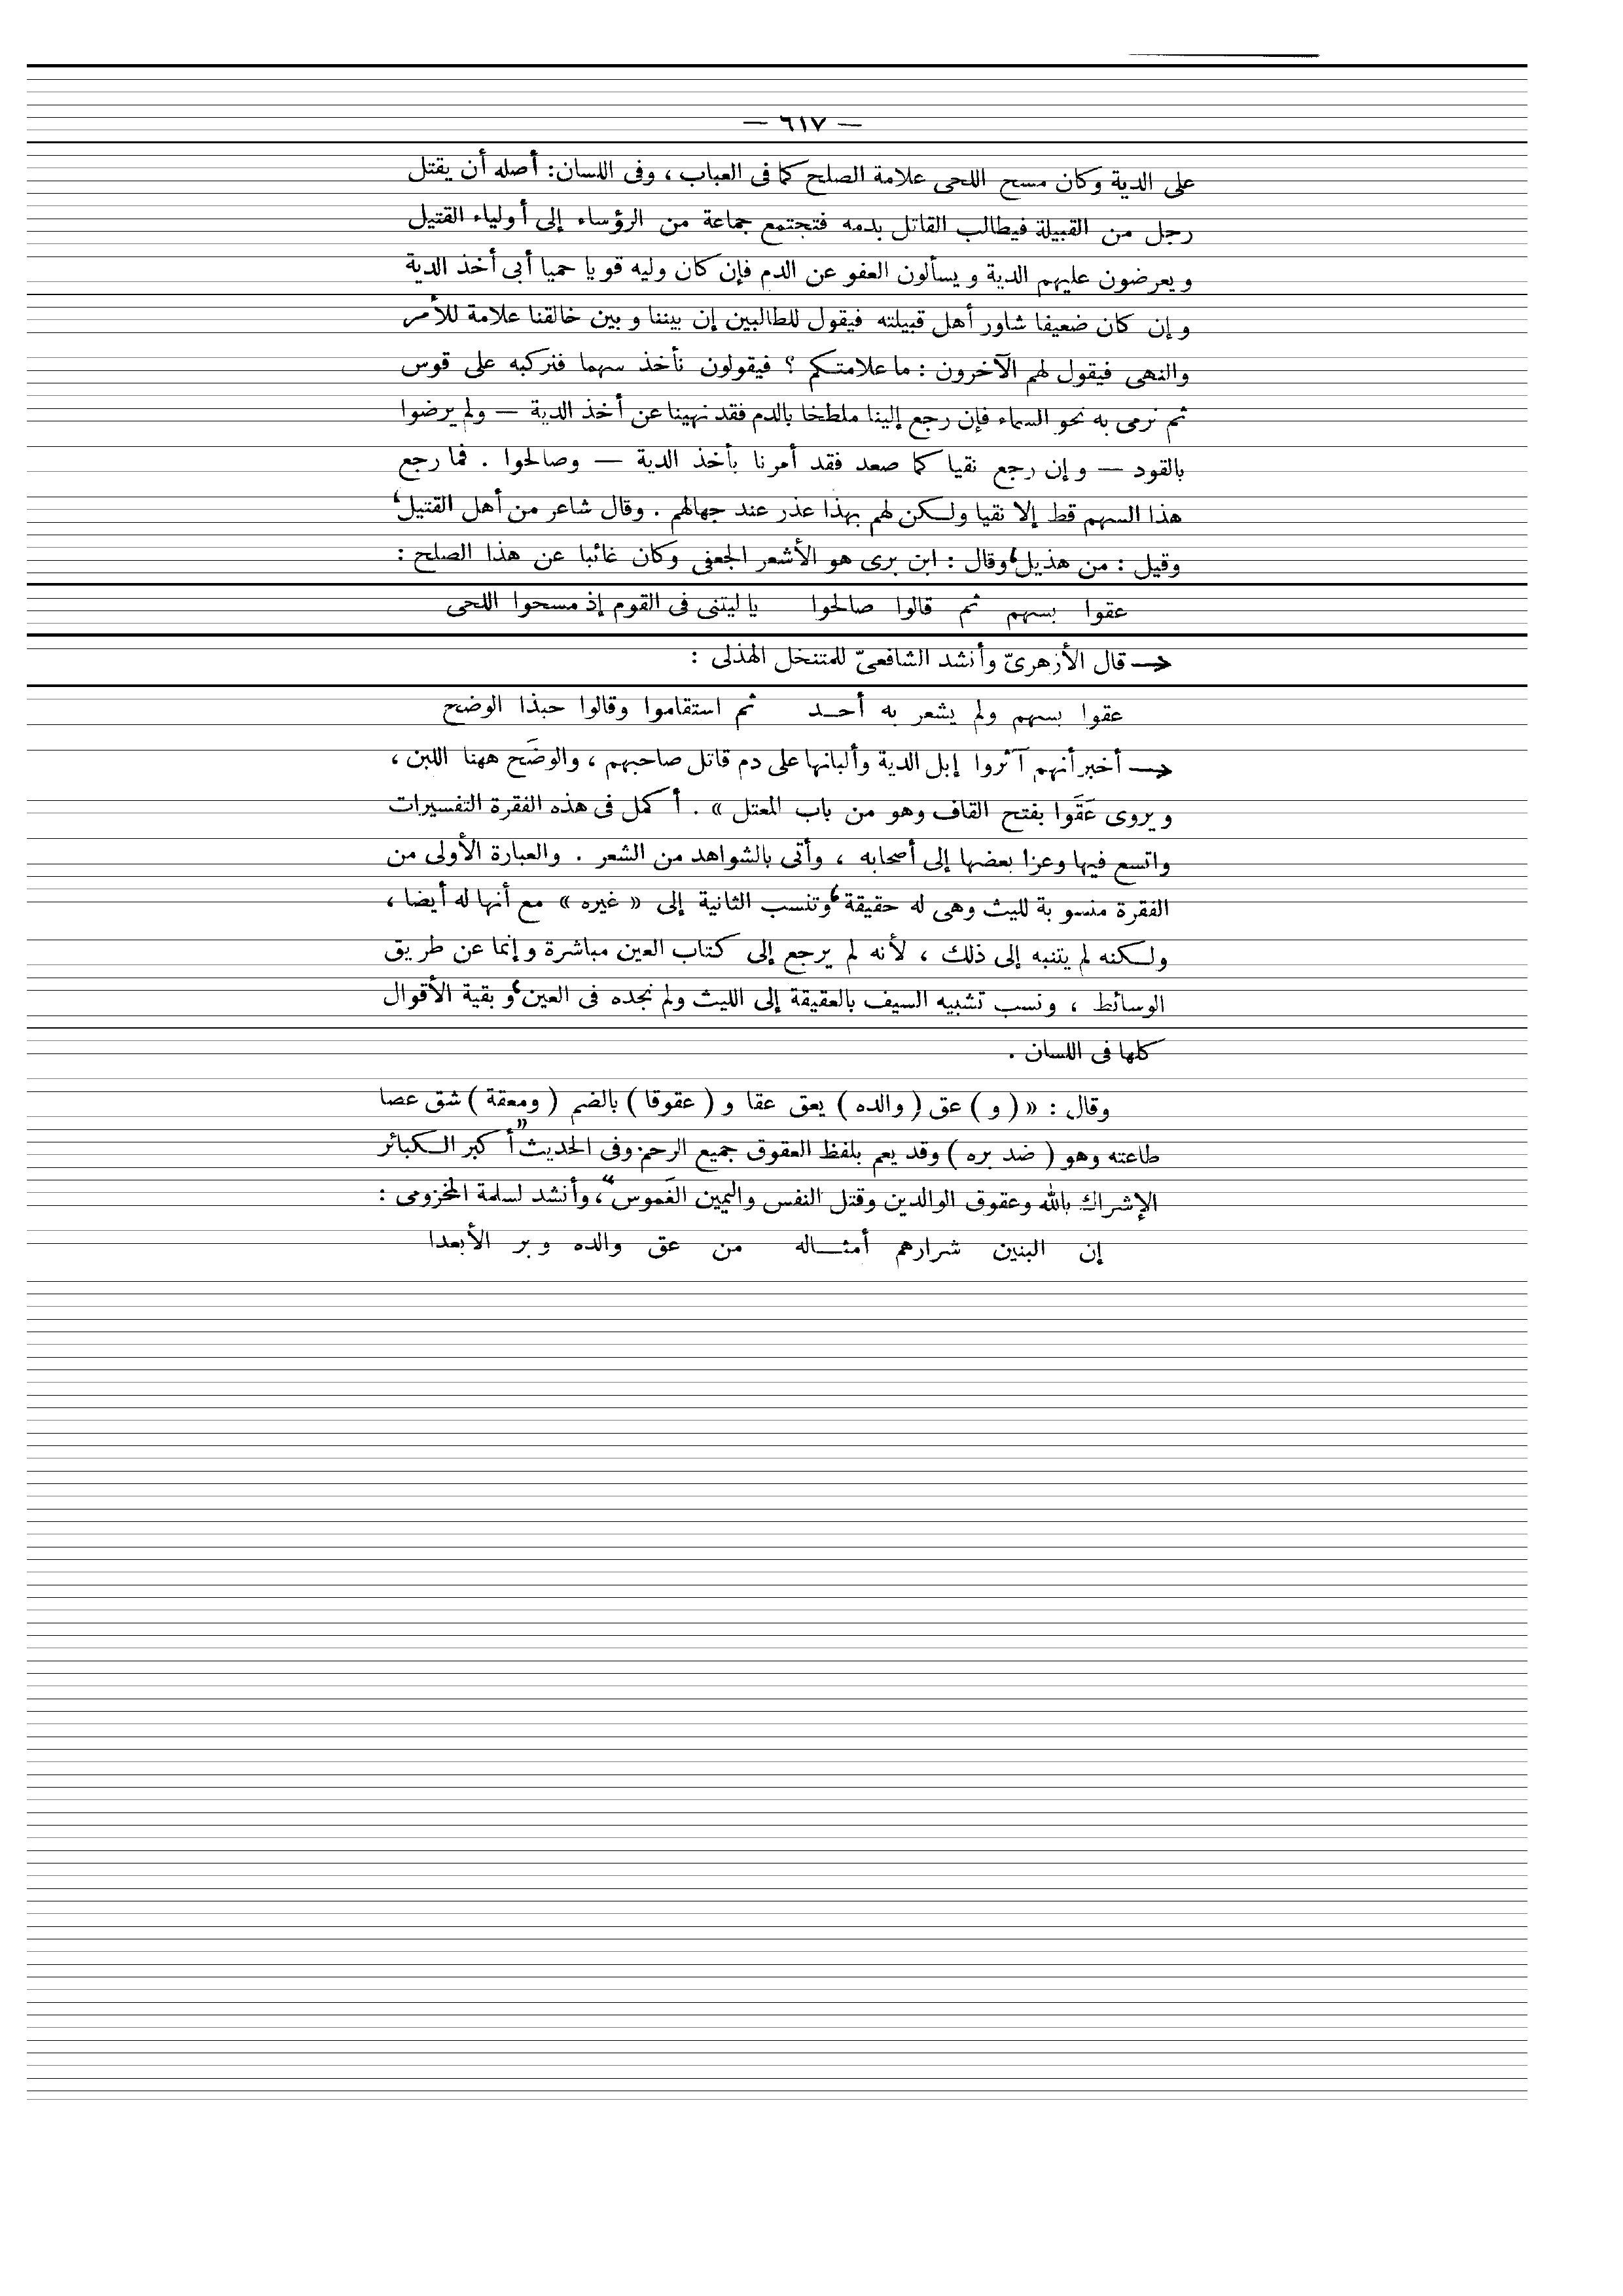 — ٦١٧ —
على الدية وكان مسح اللحى علامة الصلح كما فى العباب ، وفى اللسان : أصله أن يقتل
رجل من القبيلة فيطالب القاتل بدمه فتجتمع جماعة من الرؤساء إلى أولياء القتيل
ويعرضون عليهم الدية ويسألون العفو عن الدم فإن كان وليه قويا حميا أبى أخذ الدية
وإن كان ضعيفا شاور أهل قبيلته فيقول للطالبين إن بيننا وبين خالقنا علامة للأمر
والنهى فيقول لهم الآخرون : ما علامتكم ؟ فيقولون نأخذ سهما فنركبه على قوس
ثم نرمى به نحو السماء فإن رجع إلينا ملطخا بالدم فقد نهينا عن أخذ الدية — ولم يرضوا
بالقود — وإن رجع نقيا كما صعد فقد أمرنا بأخذ الدية — وصالحوا . فما رجع
هذا السهم قط إلا نقيا ولكن لهم بهذا عذر عند جهالهم . وقال شاعر من أهل القتيل ،
وقيل : من هذيل ، وقال : ابن برى هو الأشعر الجعفى وكان غائبا عن هذا الصلح :
عقوا بسهم ثم قالوا صالحوا يا ليتنى فى القوم إذ مسحوا اللحى
قال الأزهرىّ وأنشد الشافعىّ للمتنخل الهذلى :
عقوا بسهم ولم يشعر به أحـد ثم استقاموا وقالوا حبذا الوضح
أخبر أنهم آثروا إبل الدية وألبانها على دم قاتل صاحبهم ، والوضَح ههنا اللبن ،
ويروى عَقَوا بفتح القاف وهو من باب المعتل » . أكمل فى هذه الفقرة التفسيرات
واتسع فيها وعزا بعضها إلى أصحابه ، وأتى بالشواهد من الشعر . والعبارة الأولى من
الفقرة منسوبة لليث وهى له حقيقة ، وتنسب الثانية إلى « غيره » مع أنها له أيضا ،
ولكنه لم يتنبه إلى ذلك ، لأنه لم يرجع إلى كتاب العين مباشرة وإنما عن طريق
الوسائط ، ونسب تشبيه السيف بالعقيقة إلى الليث ولم نجده فى العين ، وبقية الأقوال
كلها فى اللسان .
وقال : « ( و ) عق ( والده ) يعق عقا و ( عقوقا ) بالضم ( ومعقة ) شق عصا
طاعته وهو ( ضد بره ) وقد يعم بلفظ العقوق جميع الرحم . وفى الحديث " أكبر الكبائر
الإشراك بالله وعقوق الوالدين وقتل النفس واليمين الغَموس " ، وأنشد لسلمة المخزومى :
إن البنين شرارهم أمثـاله من عق والده وبر الأبعدا